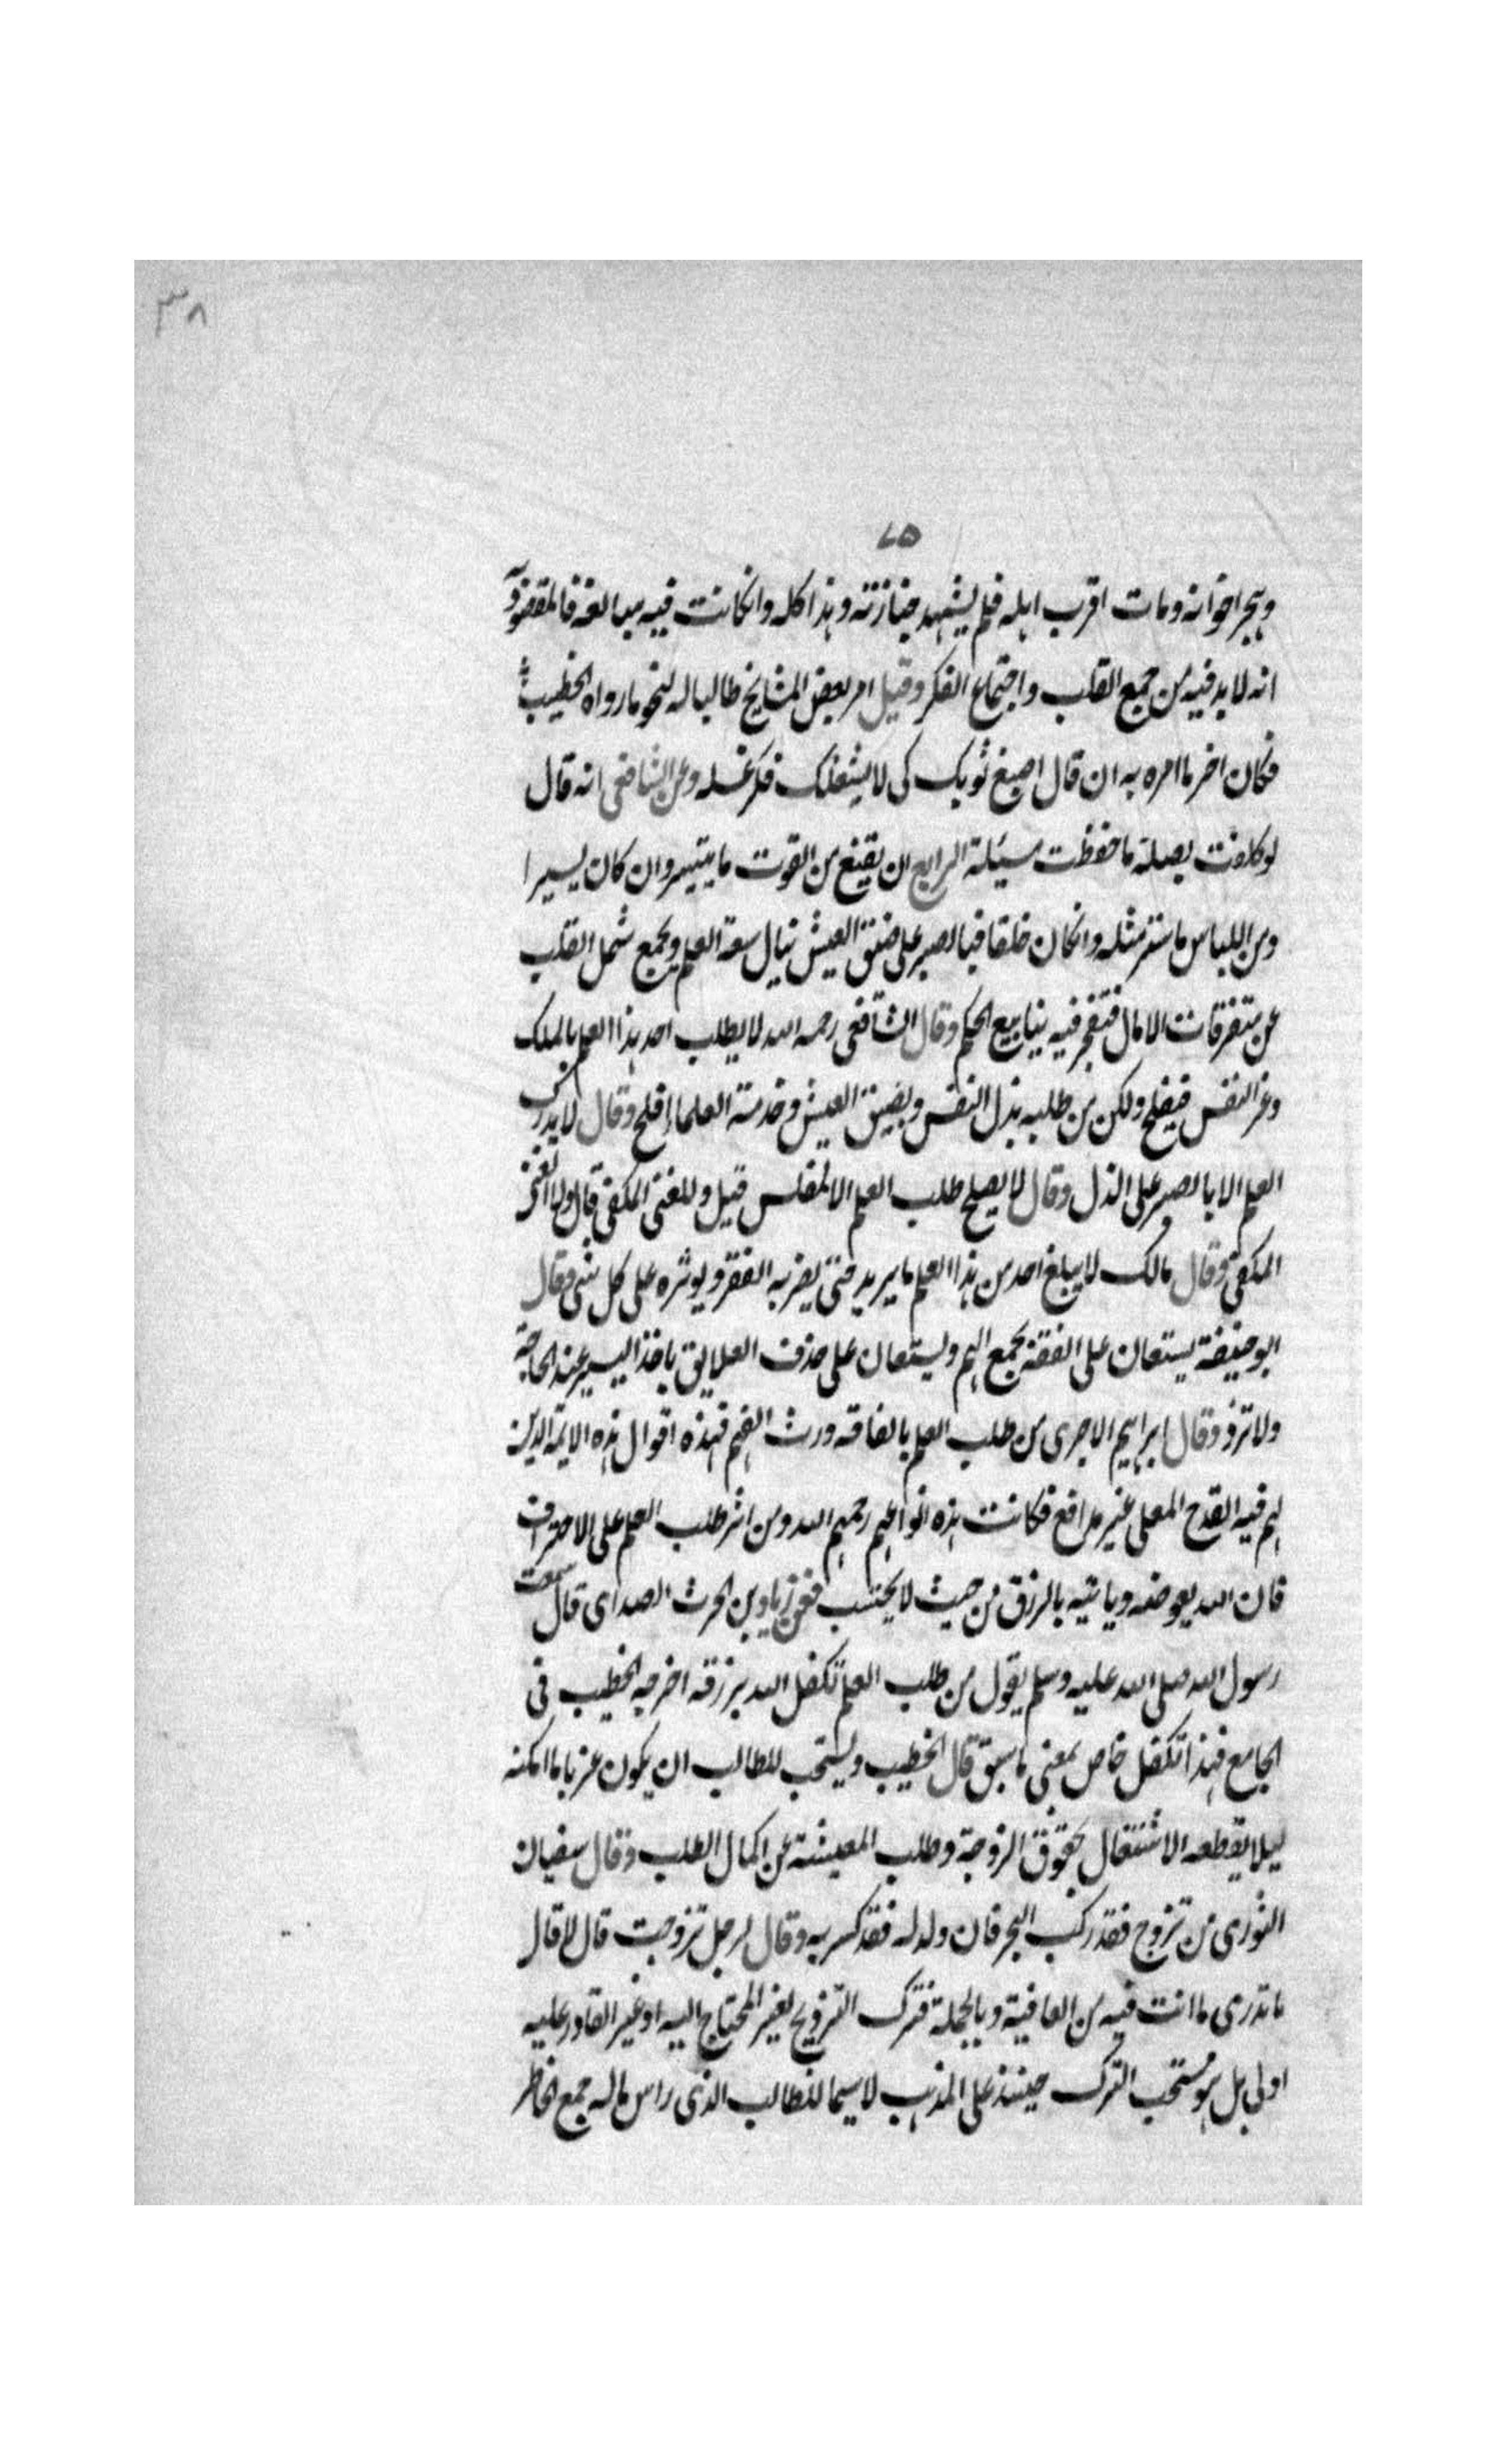 ٣٨
٧٥
وهجر اخوانه ومات اقرب اهله فلم يشهد جنازته وهذا كله وانكانت فيه مبالغة فالمقصود
انه لا بد فيه من جمع القلب واجتماع الفكر وقيل امر بعض المشايخ طالبا له لنحو ما رواه الخطيب
فكان اخر ما امره به ان قال اصبغ ثوبك كى لا يشغلك فكر غسله وعن الشافعى انه قال
لو كلفت بصلة ما حفظت مسئلة الرابع ان يقنع من القوت ما يتيسر وان كان يسيرا
ومن اللباس ما ستر مثله وانكان خلقا فبالصبر على ضيق العيش تنال سعة العلم ويجمع شمل القلب
عن متفرقات الامال فتفجر فيه ينابيع الحكم وقال الشافعى رحمه الله لا يطلب احد هذا العلم بالملك
وعز النفس فيفلح ولكن من طلبه بذل النفس وبضيق العيش وخدمة العلماء افلح وقال لا يدرك
العلم الا بالصبر على الذل وقال لا يصلح طلب العلم الا لمفلس قيل ولا للغنى المكفى قال ولا الغنى
المكفى وقال مالك لا يبلغ احد من هذا العلم ما يريد حتى يضر به الفقر ويوثره على كل شى وقال
ابو حنيفة يستعان على الفقه بجمع الهم ويستعان على حذف العلايق باخذ اليسير عند الحاجة
ولا تزد وقال ابراهيم الاجرى من طلب العلم بالفاقه ورث الفهم فهذه اقوال هذه الايمة الذين
لهم فيه القدح المعلى غير مدافع فكانت هذه انواعهم رحمهم الله ومن اثر طلب العلم على الاحتراف
فان الله يعوضه وياتيه بالرزق من حيث لا يحتسب فعن زياد بن الحرث الصداى قال سمعت
رسول الله صلى الله عليه وسلم يقول من طلب العلم تكفل الله برزقه اخرجه الخطيب فى
الجامع فهذا تكفل خاص بمعنى ما سبق قال الخطيب ويستحب للطالب ان يكون عزبا ما امكنه
ليلا يقطعه الاشتغال بحقوق الزوجة وطلب المعيشة عن اكمال الطلب وقال سفيان
الثورى من تزوج فقد ركب البحر فان ولد له فقد كسر به وقال لرجل تزوجت قال لا قال
ما تدرى ما انت فيه من العافية وبالجملة فترك التزويج لغير المحتاج اليه او غير القادر عليه
اولى بل هو مستحب الترك حينئذ على المذهب لا سيما للطالب الذى راس ماله جمع الخاطر